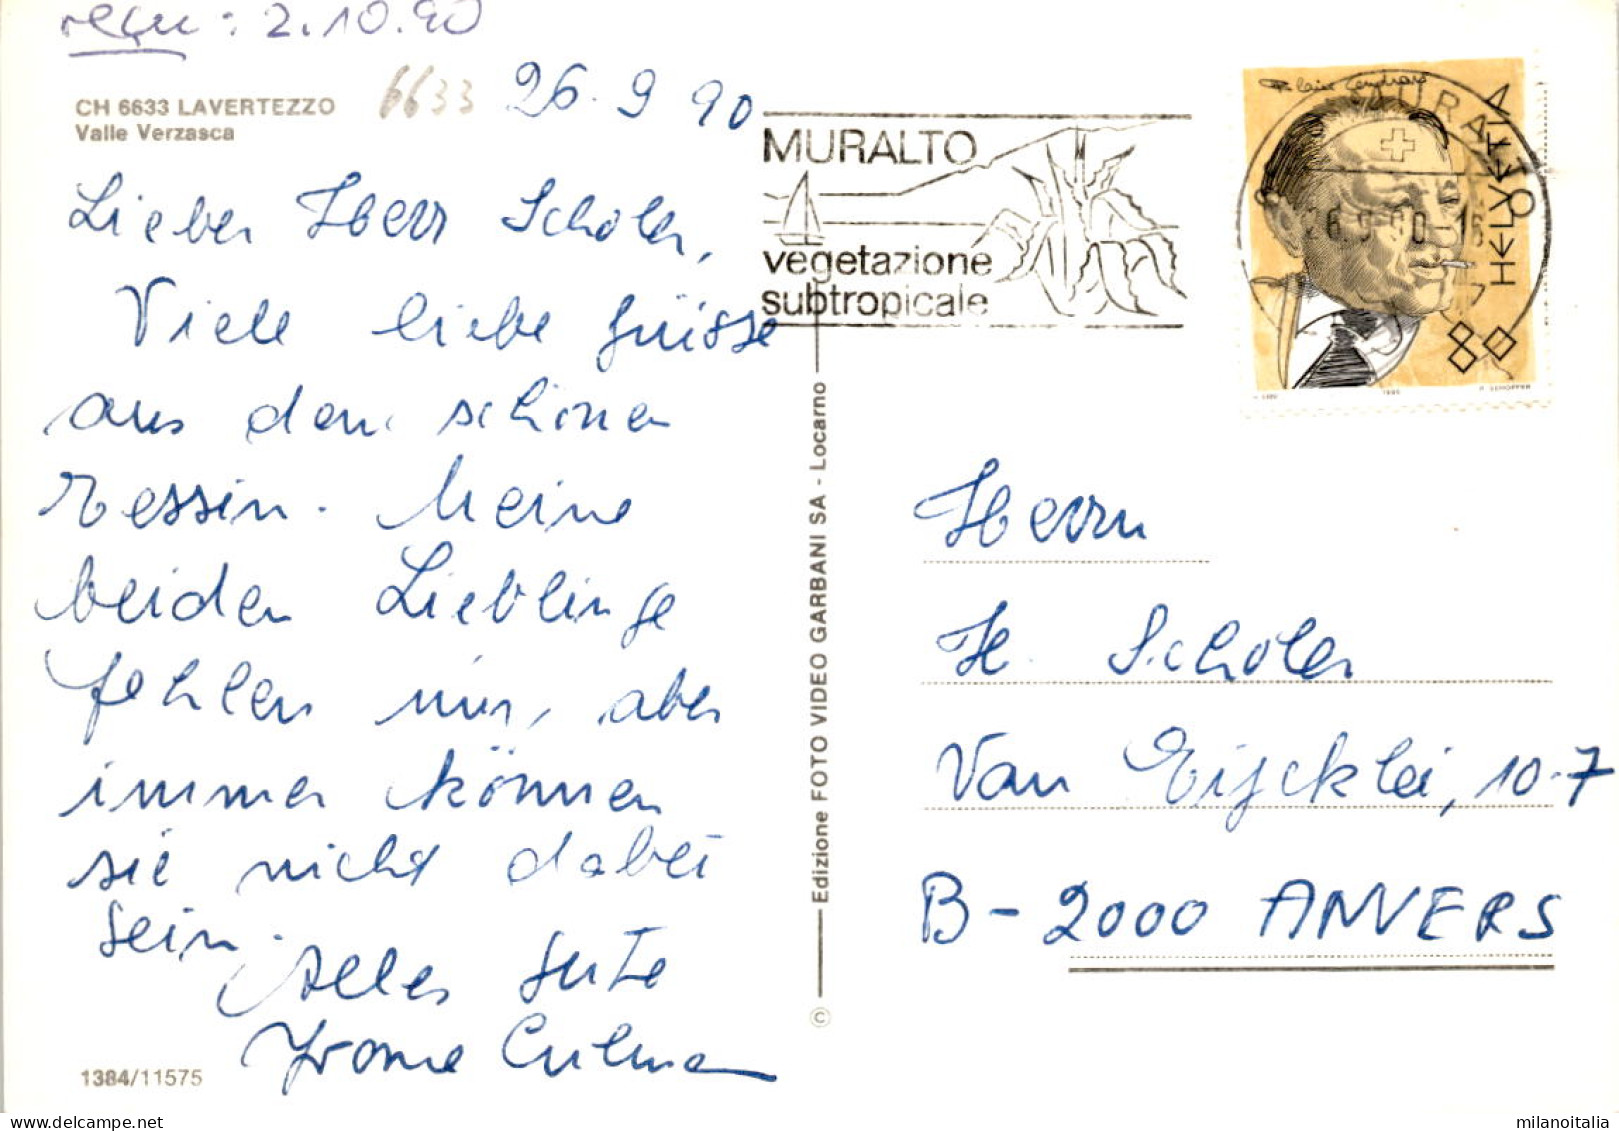 reçu : 2.10.90
CH 6633 LAVERTEZZO
Valle Verzasca
6633 26.9 90
Lieber Herr Scholer,
Viele liebe Grüsse
aus dem schönen
Tessin. Meine
beiden Lieblinge
fehlen mir, aber
immer können
sie nicht dabei
sein.
Alles Gute
Yvonne
1384/11575
Edizione FOTO VIDEO GARBANI SA - Locarno
©
MURALTO
vegetazione
subtropicale
MURALTO
26.9.90-16
HELVETIA
80
Herrn
H. Scholer
Van Eijcklei, 10-7
B-2000 ANVERS
milanoitalia